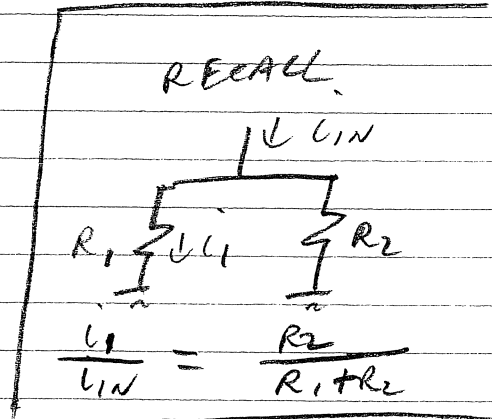 RECALL.
↓ iIN
R1 ↓i1 R2
i1/iIN = R2/R1+R2